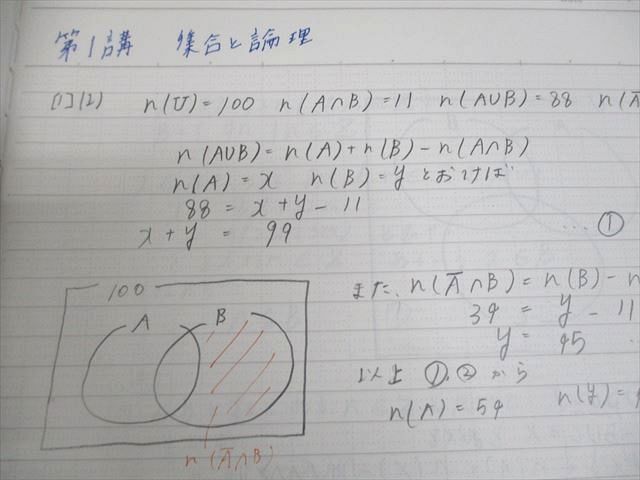 第1講 集合と論理
[1](2) n(U)=100 n(A∩B)=11 n(A∪B)=88 n(A̅
n(A∪B)=n(A)+n(B)-n(A∩B)
n(A)=x n(B)=y とおけば
88 = x+y-11
x+y = 99 … ①
また、n(A̅∩B)=n(B)-n
34 = y-11
y = 45
以上 ①,② から
n(A)=54 n(y)=
100
A B
n(A̅∩B)